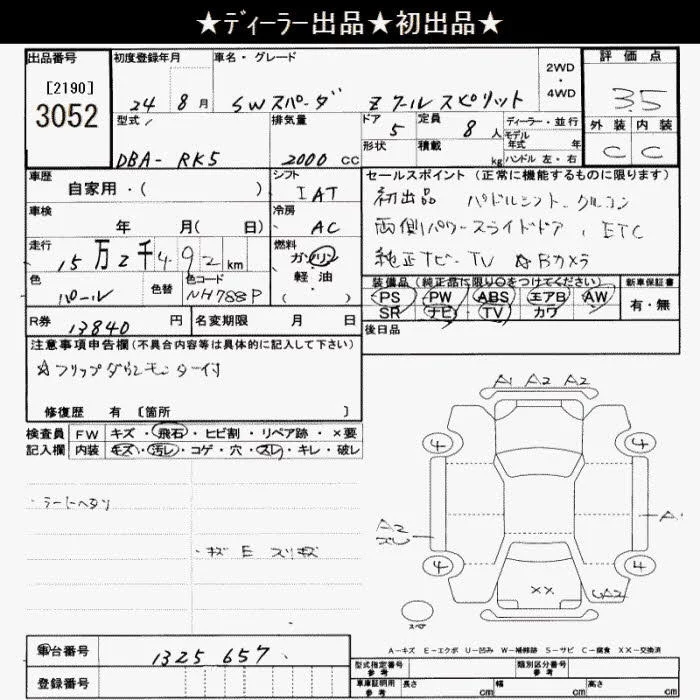 ★ディーラー出品★初出品★
出品番号
[2190]
3052
初度登録年月
24 8月
車名・グレード
SWスパーダ Zクールスピリット
2WD
・
4WD
評価点
3.5
外装 内装
C C
型式
DBA- RK5
排気量
2000 CC
ドア
5
定員
8 人
形状
積載
kg
ディーラー・並行
モデル年式 年
ハンドル 左・右
車歴
自家用・( )
シフト
IAT
車検
年 月( 日)
冷房
AC
走行
15万2千492km
燃料
ガソリン
軽・油
( )
色
パール
色替
色コード
NH788P
R券
13840 円
名変期限 月 日
セールスポイント(正常に機能するものに限ります)
初出品 パドルシフト、クルコン
両側パワースライドドア、ETC
純正ナビ・TV ☆Bカメラ
装備品(純正品に限り○をつけてください)
PS PW ABS エアB AW
SR ナビ TV カワ
新車保証書
有・無
後日品
注意事項申告欄(不具合内容等は具体的に記入して下さい)
☆フリップダウンモニター付
修復歴 有 [箇所 ]
検査員 FW キズ・飛石・ヒビ割・リペア跡・×要
記入欄 内装 キズ・汚レ・コゲ・穴・スレ・キレ・破レ
・キズ E スリキズ
A1 A2 A2
4 4
A2
A1
4 4
XX
A2
スペア
A-キズ E-エクボ U-凹み W-補修跡 S-サビ C-腐食 XX-交換済
車台番号 1325657
登録番号
型式指定番号
参考
類別区分番号
参考
車庫証明用
参考
長さ cm 幅 cm 高さ cm